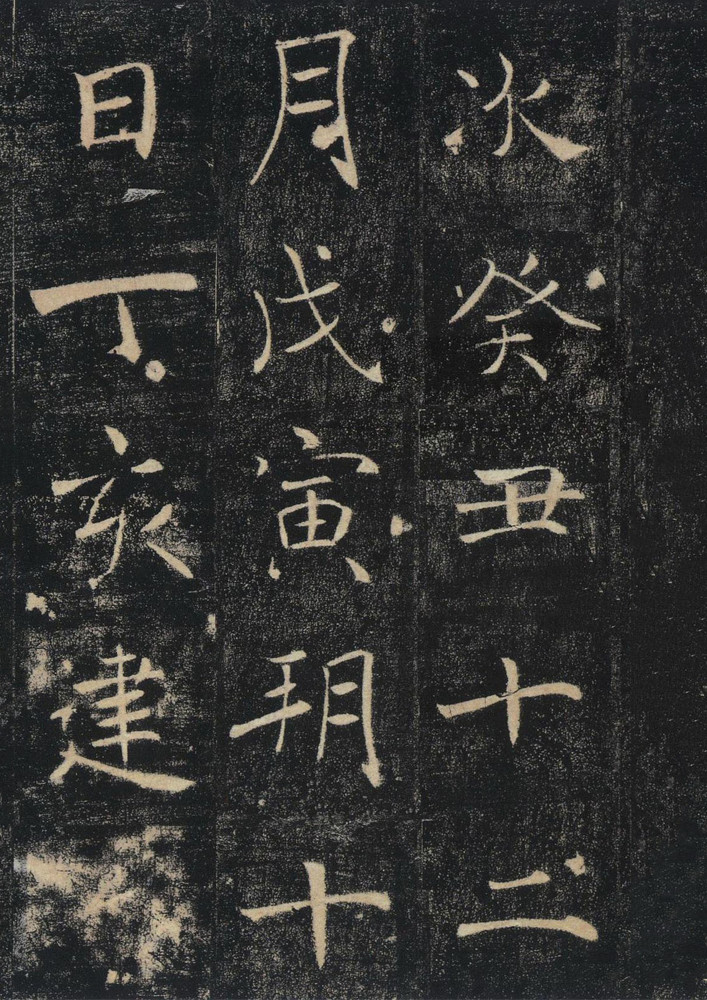 次癸丑十二
月戊寅朔十
日丁亥建